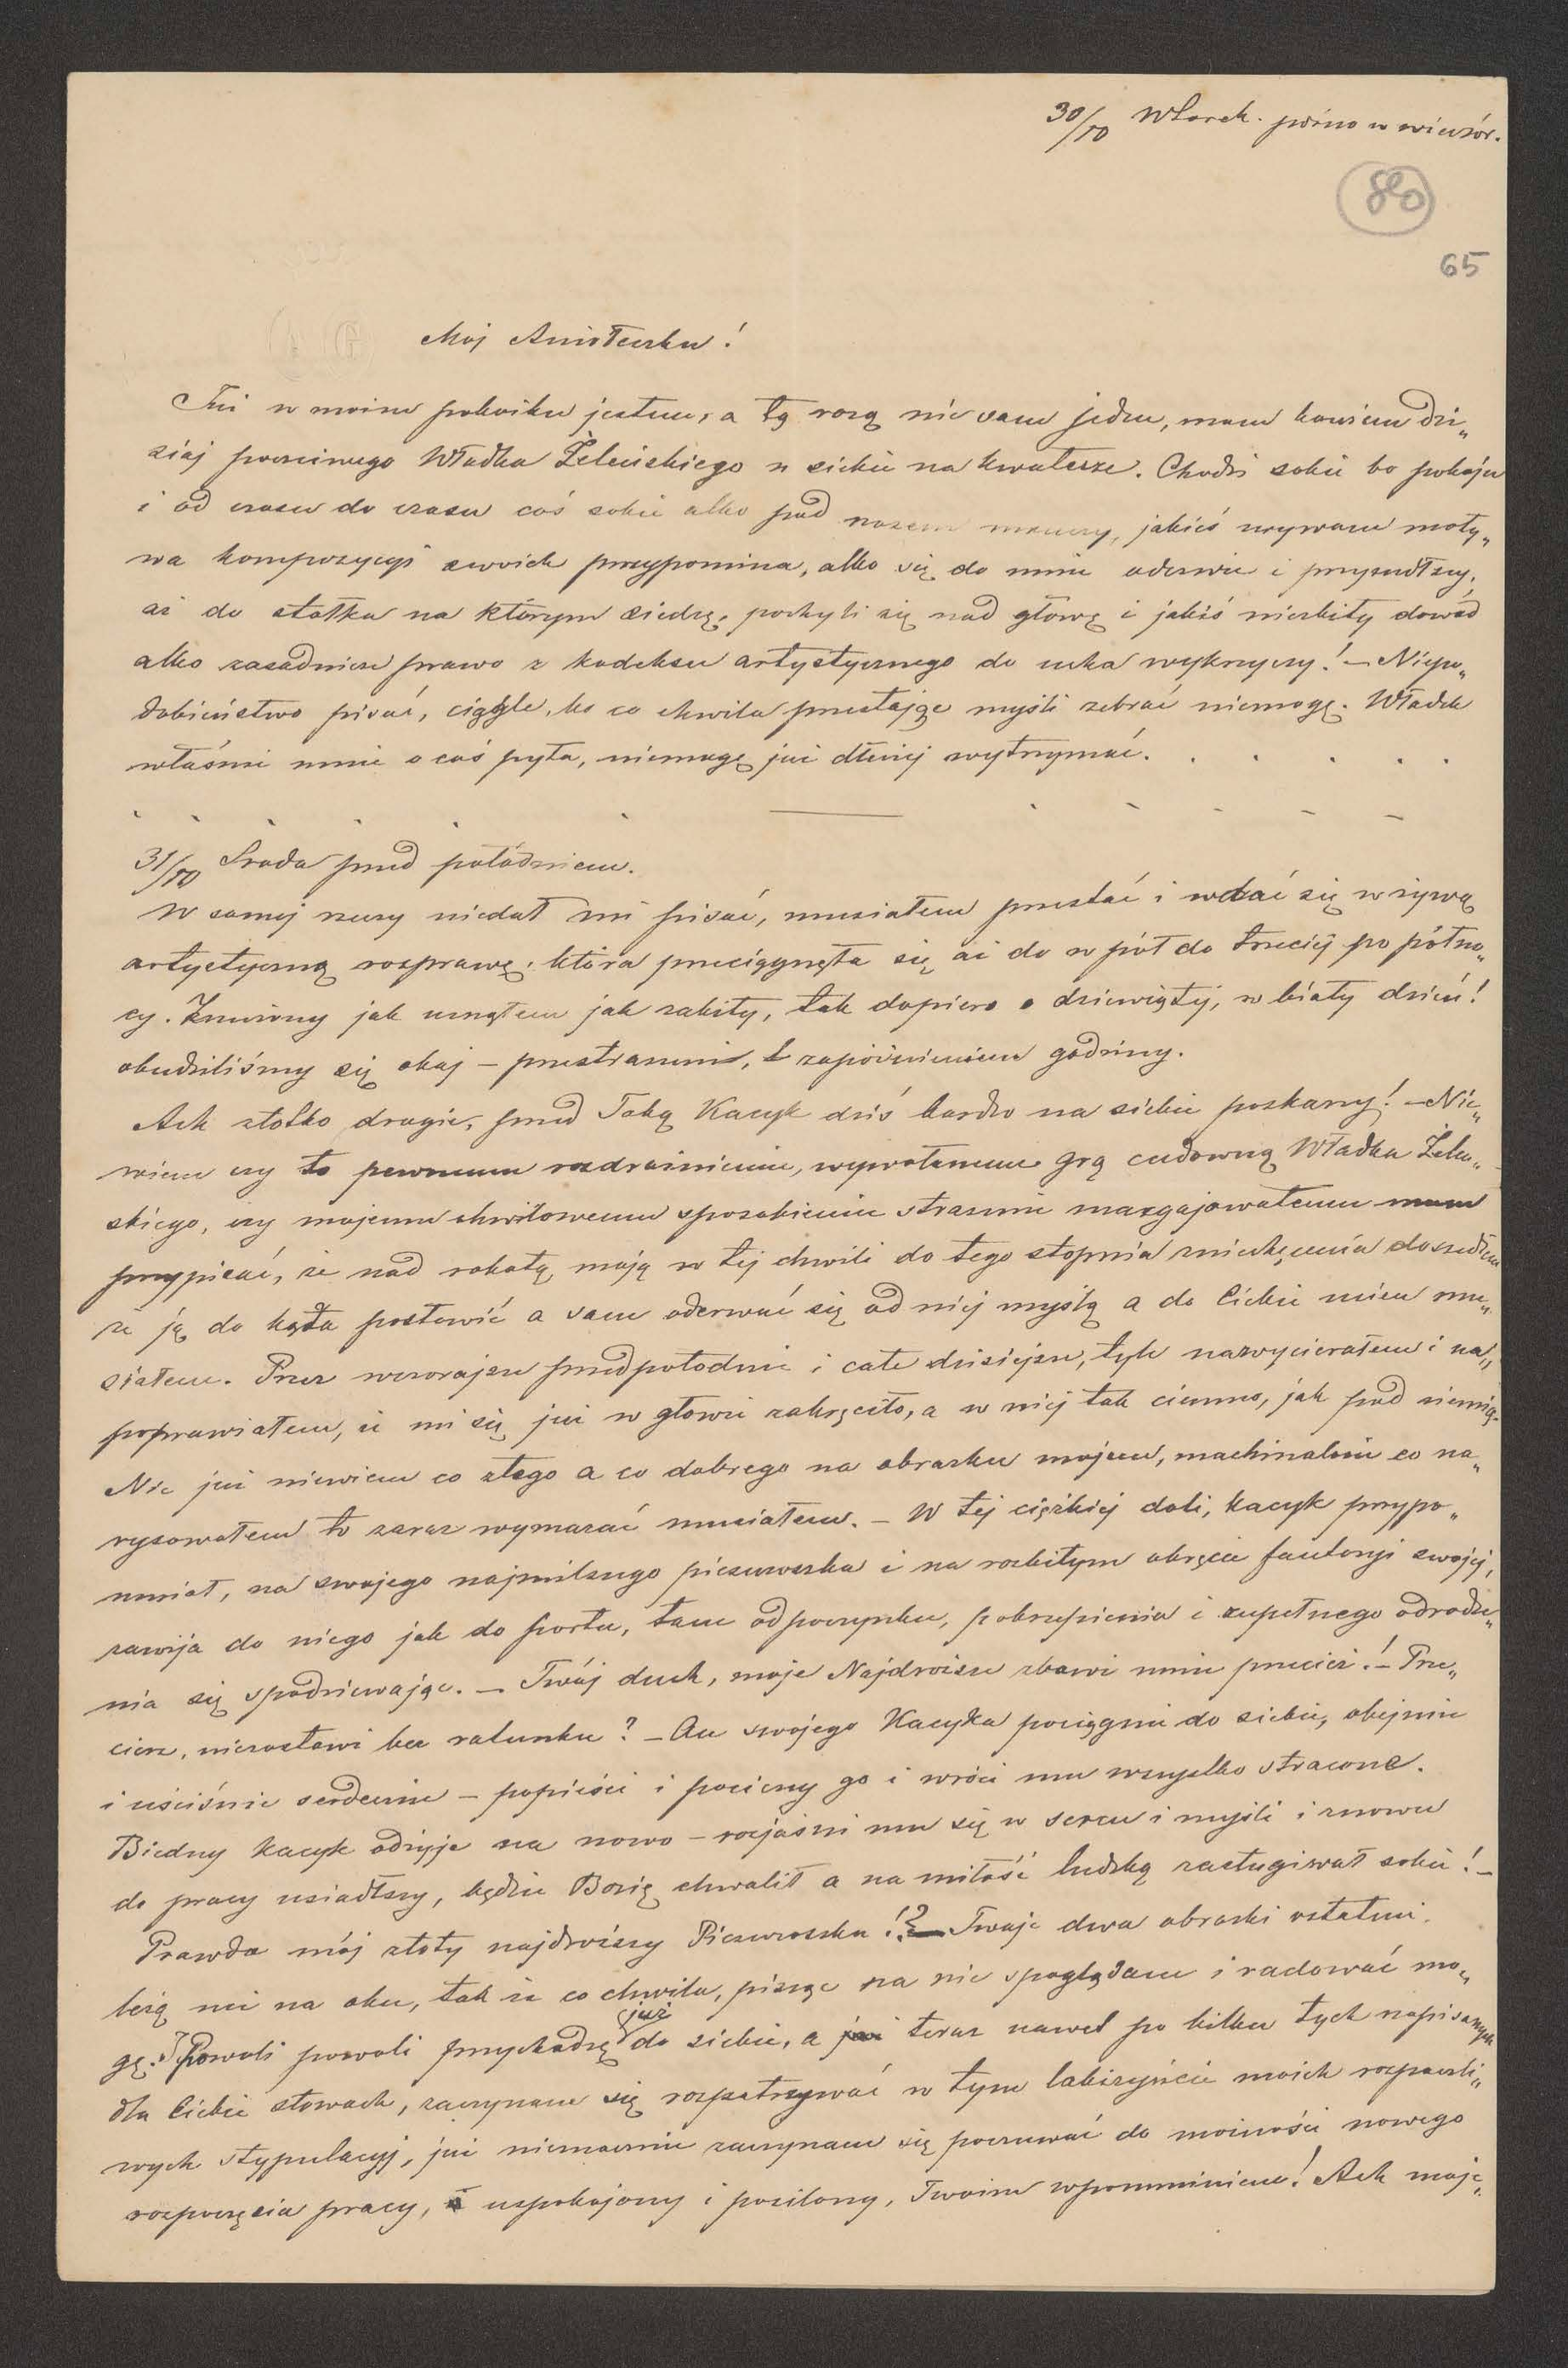 30/10 Wtorek. późno w wieczór.
80
65
Mój Aniołeczku!
Już w moim pokoiku jestem, a tą rozą nie sam jeden, mam bowiem dzi„
siaj poczciwego Władka Żeleńskiego u siebie na kwaterze. Chodzi sobie bo pokoju
i od czasu do czasu coś sobie albo pod nosem mruczy, jakieś urywane moty„
wa kompozycyi swoich przypomina, albo się do mnie oderwie i przyszedłszy,
aż do stołka na którym siedzę, pochyli się nad głową i jakiś niezbity dowód
albo zasadnicze prawo z kodeksu artystycznego do ucha wykrzyczy! – Niepo„
dobieństwo pisać, ciągle, bo co chwila przestając myśli zebrać niemogę. Władek
właśnie mnie o coś pyta, niemogę już dłużej wytrzymać. . . . . .
31/10 Środa przed połódniem.
W samej rzeczy niedał mi pisać, musiałem przestać i wdać się w żywą
artystyczną rozprawę, która przeciągnęła się aż do w pół do trzeciej po półno„
cy. Znużony jak usnąłem jak zabity, tak dopiero o dziewiątej, w biały dzień!
obudziliśmy się obaj – przestraszeni, z zapóźnieniem godziny.
Ach złotko drogie, przed Tobą Kacyk dziś bardzo na siebie poskarży! – Nie„
wiem czy to pewnemu rozdrażnieniu, wywołanemu grą cudowną Władka Żeleń„
skiego, czy mojemu chwilowemu usposobieniu strasznie mazgajowatemu mam
przypisać, że nad robotą moją w tej chwili do tego stopnia zniechęcenia doszedłem
że ją do kąta postawić a sam oderwać się od niej myślą a do Ciebie uciec mu„
siałem. Przez wczorajsze przedpołodnie i całe dzisiejsze, tyle nawycierałem i na„
poprawiałem, iż mi się już w głowie zakręciło, a w niej tak ciemno, jak pod ziemią.
Nic już niewiem co złego a co dobrego na obrazku mojem, machinalnie co na„
rysowałem to zaraz wymazać musiałem. – W tej ciężkiej doli, kacyk przypo„
mniał, na swojego najmilszego pieszczoszka i na rozbitym okręcie fantazyi swojej,
zawija do niego jak do portu, tam odpoczynku, pokrzepienia i zupełnego odrodze„
nia się spodziewając. – Twój duch, moje Najdroższe zbawi mnie przecież! – Prze„
ciesz, niezostawi bez ratunku? – On swojego Kacyka pociągnie do siebie, obejmie
i uściśnie serdecznie – popieści i pocieszy go i wróci mu wszystko stracone.
Biedny kacyk odżyje na nowo – rozjaśni mu się w sercu i myśli i znowu
do pracy usiadłszy, będzie Bozię chwalił a na miłość ludzką zasługiwał sobie! –
Prawda mój złoty najdroższy Pieszczoszku!? – Twoje dwa obrazki ostatnie,
leżą mi na oku, tak że co chwila, pisząc na nie spoglądam i radować mo„
gę. Powoli powoli przychodzę już do siebie, a teraz nawet po kilku tych napisanych
dla Ciebie słowach, zaczynam się rozpatrzywać w tym labiryńcie moich rozpaczli„
wych stypulacyj, już nieznacznie zaczynam się poczuwać do możności nowego
rozpoczęcia pracy, uspokojony i posilony, Twoim wpomnieniem! Ach moje„